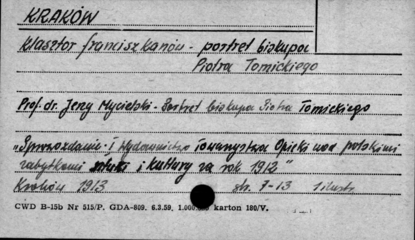 KRAKÓW
Klasztor franciszkanów - portret biskupa
Piotra Tomickiego
Prof. dr. Jerzy Mycielski - Portret biskupa Piotra Tomickiego
„Sprawozdanie i Wydawnictwo Towarzystwa Opieki nad polskimi
zabytkami sztuki i kultury za rok 1912"
Kraków 1913 str. 7-13 1 ilustr.
CWD B-15b Nr 515/P. GDA-809. 6.3.59. karton 180/V.